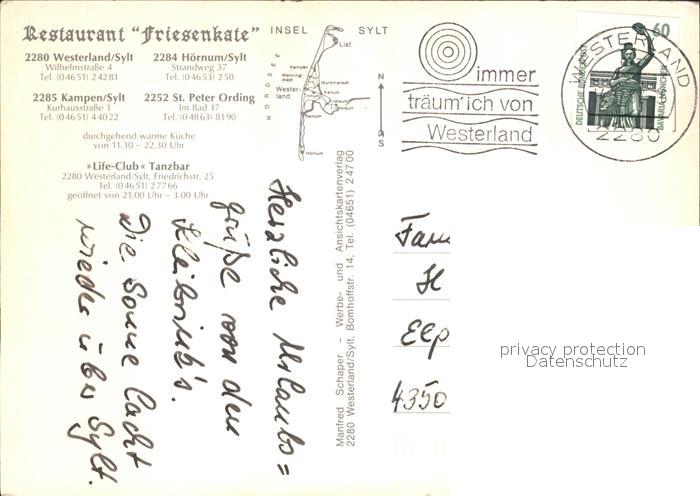 Restaurant "Friesenkate"
2280 Westerland/Sylt
Wilhelmstraße 4
Tel. (04651) 24281
2284 Hörnum/Sylt
Strandweg 37
Tel. (04653) 250
2285 Kampen/Sylt
Kurhausstraße 1
Tel. (04651) 44022
2252 St. Peter Ording
Im Bad 17
Tel. (04863) 8190
durchgehend warme Küche
von 11.30 – 22.30 Uhr
»Life-Club« Tanzbar
2280 Westerland/Sylt, Friedrichstr. 25
Tel. (04651) 27766
geöffnet von 21.00 Uhr – 3.00 Uhr
INSEL SYLT
NORDSEE
List
Kampen
Wester-
land
Hörnum
N
S
immer
träum'ich von
Westerland
WESTERLAND
2280
60
DEUTSCHE BUNDESPOST
BAVARIA MÜNCHEN
Herzliche Urlaubs=
grüße von den
Die Sonne lacht
wieder über Sylt.
Manfred Schaper – Werbe- und Ansichtskartenverlag
2280 Westerland/Sylt, Bomhoffstr. 14, Tel. (04651) 24700
Fam
4350
privacy protection
Datenschutz